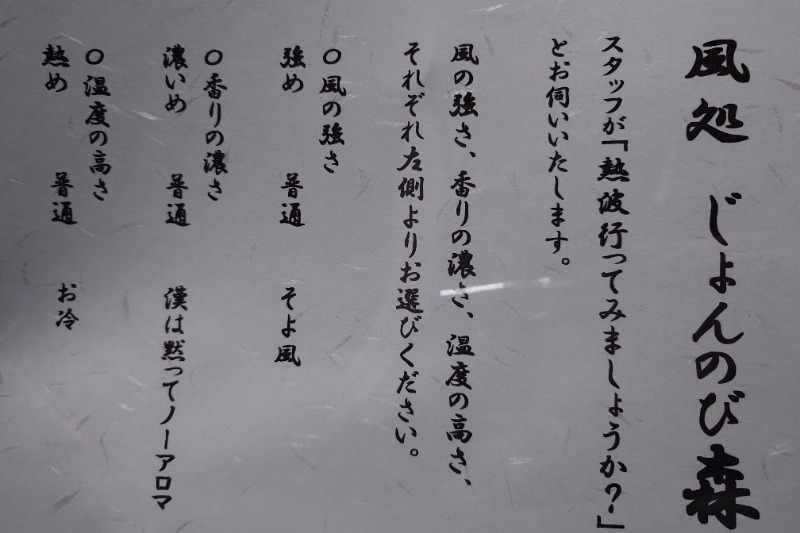 風処 じょんのび森
スタッフが「熱波行ってみましょうか？」
とお伺いいたします。
風の強さ、香りの濃さ、温度の高さ、
それぞれ左側よりお選びください。
○風の強さ
強め 普通 そよ風
○香りの濃さ
濃いめ 普通 漢は黙ってノーアロマ
○温度の高さ
熱め 普通 お冷